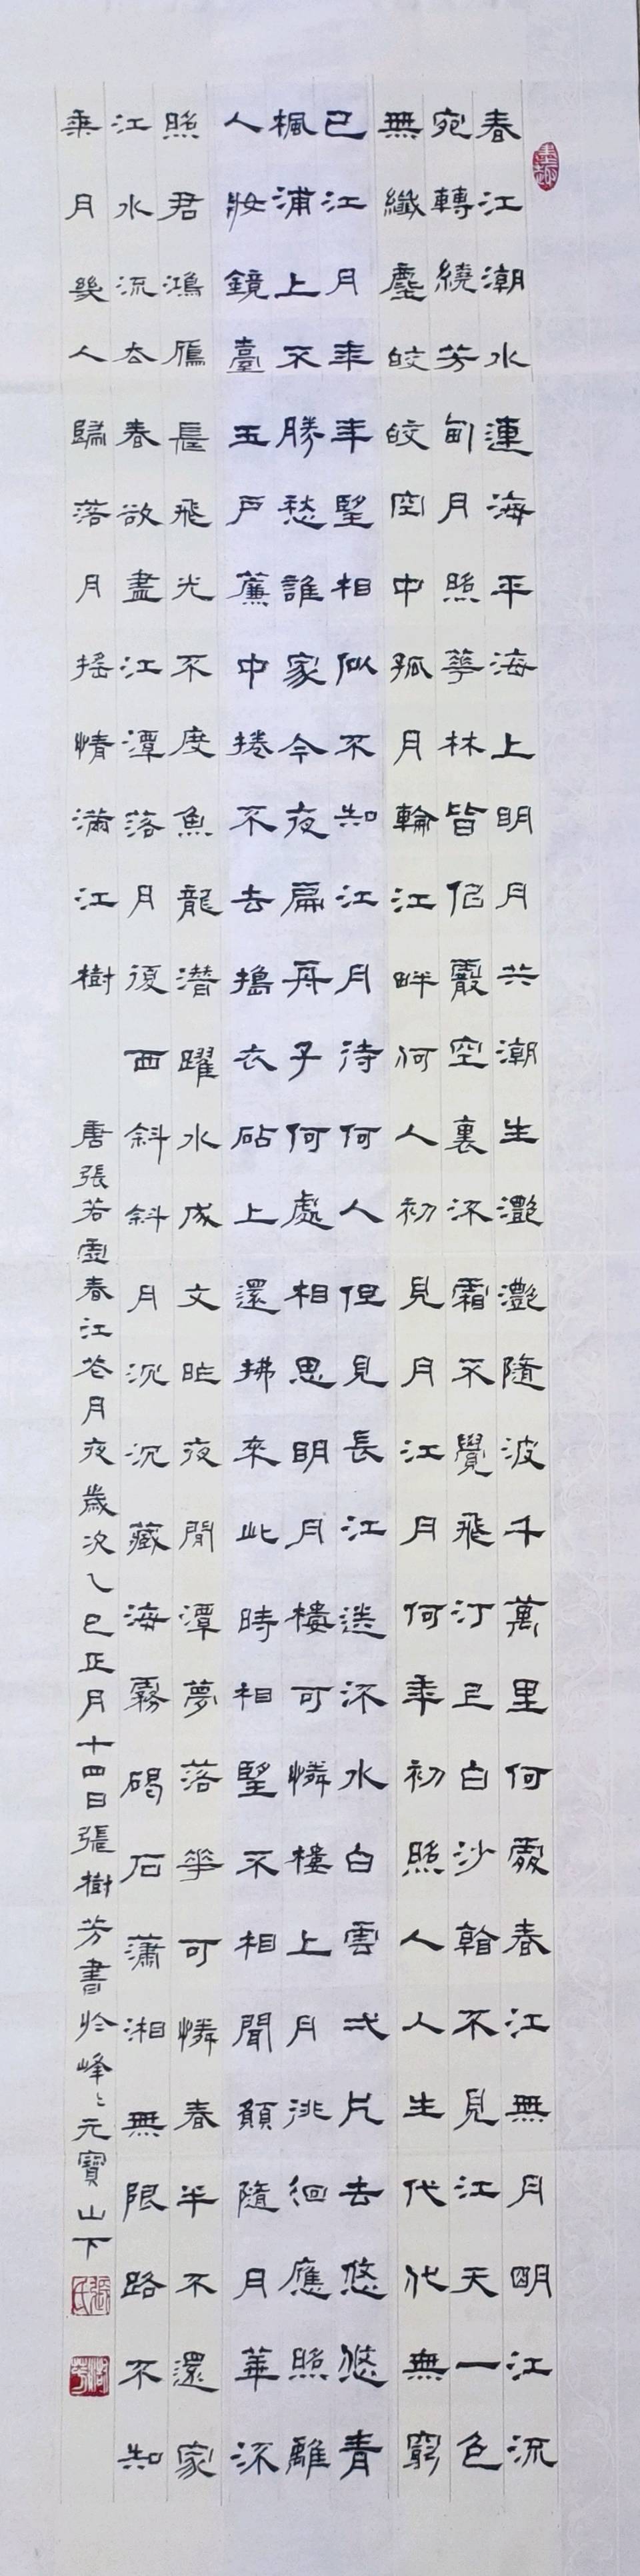 春江潮水連海平海上明月共潮生灧灧隨波千萬里何處春江無月明江流
宛轉繞芳甸月照華林皆佀霰空裏流霜不覺飛汀上白沙看不見江天一色
無纖塵皎皎空中孤月輪江畔何人初見月江月何年初照人人生代代無窮
已江月年年望相似不知江月待何人但見長江送流水白雲弌片去悠悠青
楓浦上不勝愁誰家今夜扁舟子何處相思明月樓可憐樓上月徘徊應照離
人妝鏡臺玉戶簾中捲不去搗衣砧上還拂來此時相望不相聞願隨月華流
照君鴻雁長飛光不度魚龍潛躍水成文昨夜閒潭夢落華可憐春半不還家
江水流去春欲盡江潭落月復西斜斜月沉沉藏海霧碣石瀟湘無限路不知
乘月幾人歸落月搖情滿江樹
唐張若虛春江花月夜歲次乙巳正月十四日張樹芳書於峰〻元寶山下
張氏